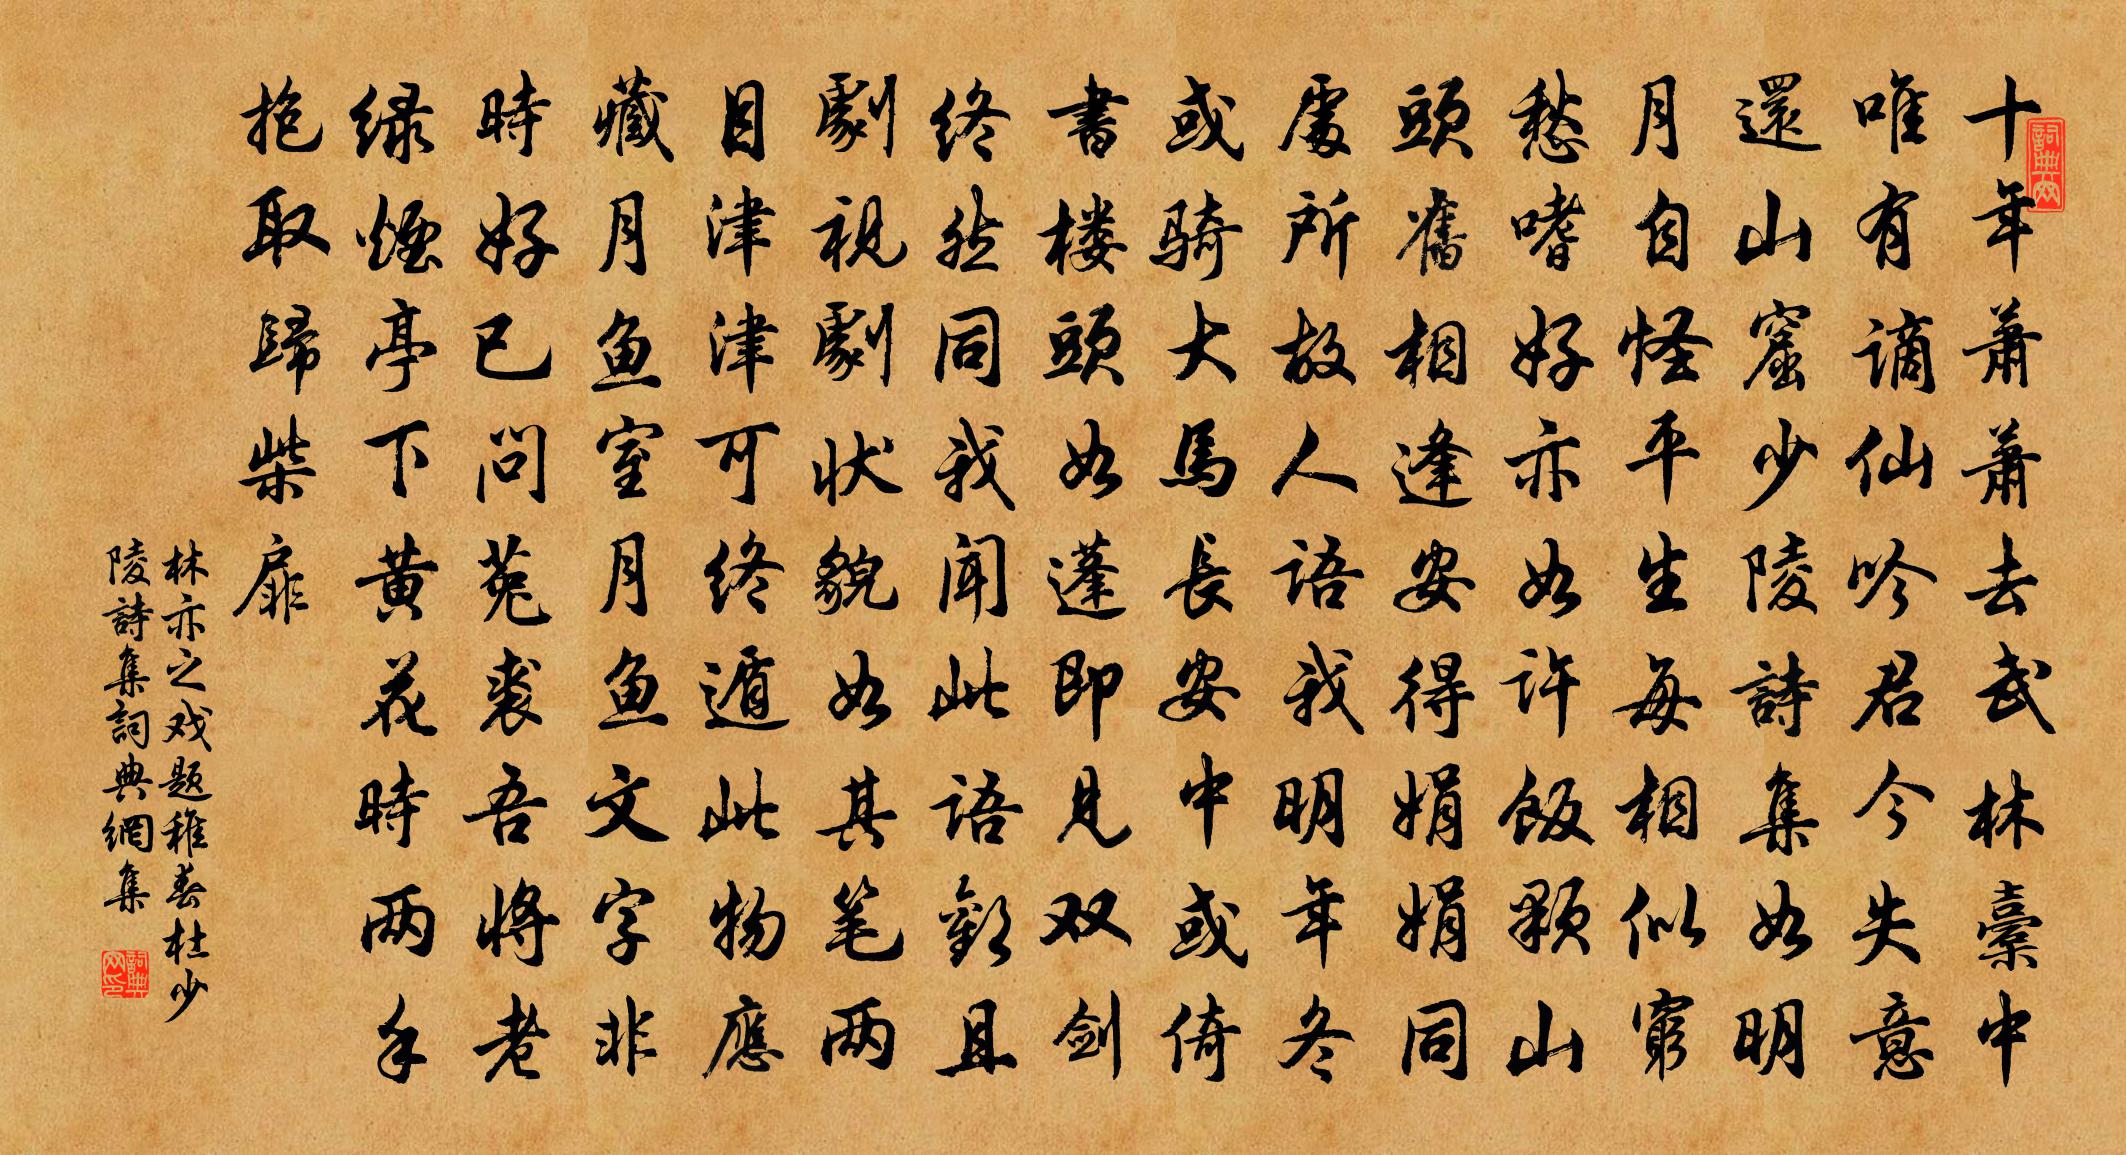 十年蕭蕭去武林橐中
唯有謫仙吟君今失意
還山窟少陵詩集如明
月自怪平生每相似窮
愁嗜好亦如許飯顆山
頭舊相逢安得娟娟同
處所故人語我明年冬
或騎大馬長安中或倚
書楼頭如蓬即見双剑
终然同我闻此語歡且
劇視劇状貌如其笔两
目津津可终遁此物應
藏月鱼室月鱼文字非
時好已问菟裘吾将老
绿煙亭下黄花時两手
抱取歸柴扉
林亦之戏题稚春杜少
陵詩集詞典網集
詞典网
詞典网印